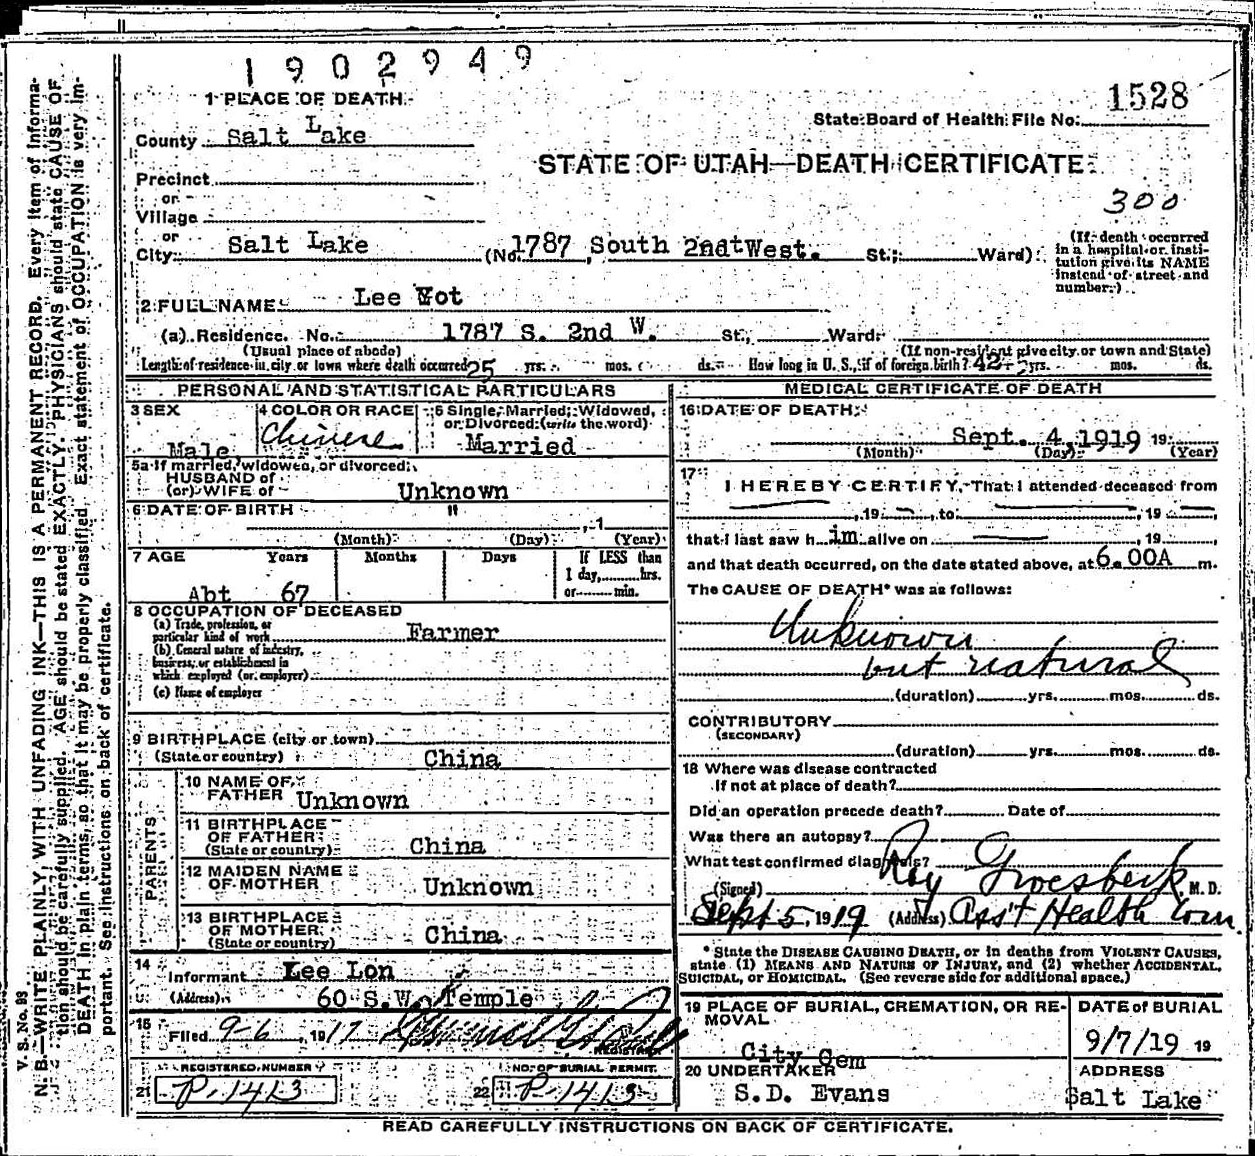 1902949
1 PLACE OF DEATH
1528
State Board of Health File No.
County Salt Lake
STATE OF UTAH—DEATH CERTIFICATE
Precinct
or
300
Village
or
City Salt Lake (No. 1787 South 2nd West. St.; Ward)
(If death occurred in a hospital or institution give its NAME instead of street and number.)
2 FULL NAME Lee Yot
(a) Residence. No. 1787 S. 2nd W. St., Ward.
(Usual place of abode) (If non-resident give city or town and State)
Length of residence in city or town where death occurred 25 yrs. mos. ds. How long in U. S., if of foreign birth? 42 yrs. mos. ds.
PERSONAL AND STATISTICAL PARTICULARS
3 SEX
Male
4 COLOR OR RACE
Chinese
5 Single, Married, Widowed, or Divorced (write the word)
Married
5a If married, widowed, or divorced
HUSBAND of
(or) WIFE of Unknown
6 DATE OF BIRTH "
, 1
(Month) (Day) (Year)
7 AGE Years Months Days
If LESS than
1 day, hrs.
or min.
Abt 67
8 OCCUPATION OF DECEASED
(a) Trade, profession, or
particular kind of work Farmer
(b) General nature of industry,
business, or establishment in
which employed (or employer)
(c) Name of employer
9 BIRTHPLACE (city or town)
(State or country) China
PARENTS
10 NAME OF
FATHER Unknown
11 BIRTHPLACE
OF FATHER
(State or country) China
12 MAIDEN NAME
OF MOTHER Unknown
13 BIRTHPLACE
OF MOTHER
(State or country) China
14
Informant Lee Lon
(Address) 60 S.W. Temple
15
Filed 9-6, 1917
REGISTRAR
REGISTERED NUMBER
21 P-1413
NO. OF BURIAL PERMIT
22 P-1413
MEDICAL CERTIFICATE OF DEATH
16 DATE OF DEATH
Sept. 4, 1919 19
(Month) (Day) (Year)
17
I HEREBY CERTIFY, That I attended deceased from
, 19 , to , 19
that I last saw h im alive on , 19
and that death occurred, on the date stated above, at 6.00A m.
The CAUSE OF DEATH* was as follows:
Unknown
but natural
(duration) yrs. mos. ds.
CONTRIBUTORY
(SECONDARY)
(duration) yrs. mos. ds.
18 Where was disease contracted
If not at place of death?
Did an operation precede death? Date of
Was there an autopsy?
What test confirmed diagnosis?
(Signed) Roy Groesbeck, M. D.
Sept 5, 1919 (Address) Ass't Health Com.
* State the DISEASE CAUSING DEATH, or in deaths from VIOLENT CAUSES,
state (1) MEANS AND NATURE OF INJURY, and (2) whether ACCIDENTAL,
SUICIDAL, or HOMICIDAL. (See reverse side for additional space.)
19 PLACE OF BURIAL, CREMATION, OR RE-
MOVAL
City Cem
DATE of BURIAL
9/7/19 19
20 UNDERTAKER
S.D. Evans
ADDRESS
Salt Lake
READ CAREFULLY INSTRUCTIONS ON BACK OF CERTIFICATE.
V. S. No. 83
N. B.—WRITE PLAINLY, WITH UNFADING INK—THIS IS A PERMANENT RECORD. Every item of informa-
tion should be carefully supplied. AGE should be stated EXACTLY. PHYSICIANS should state CAUSE OF
DEATH in plain terms, so that it may be properly classified. Exact statement of OCCUPATION is very im-
portant. See instructions on back of certificate.